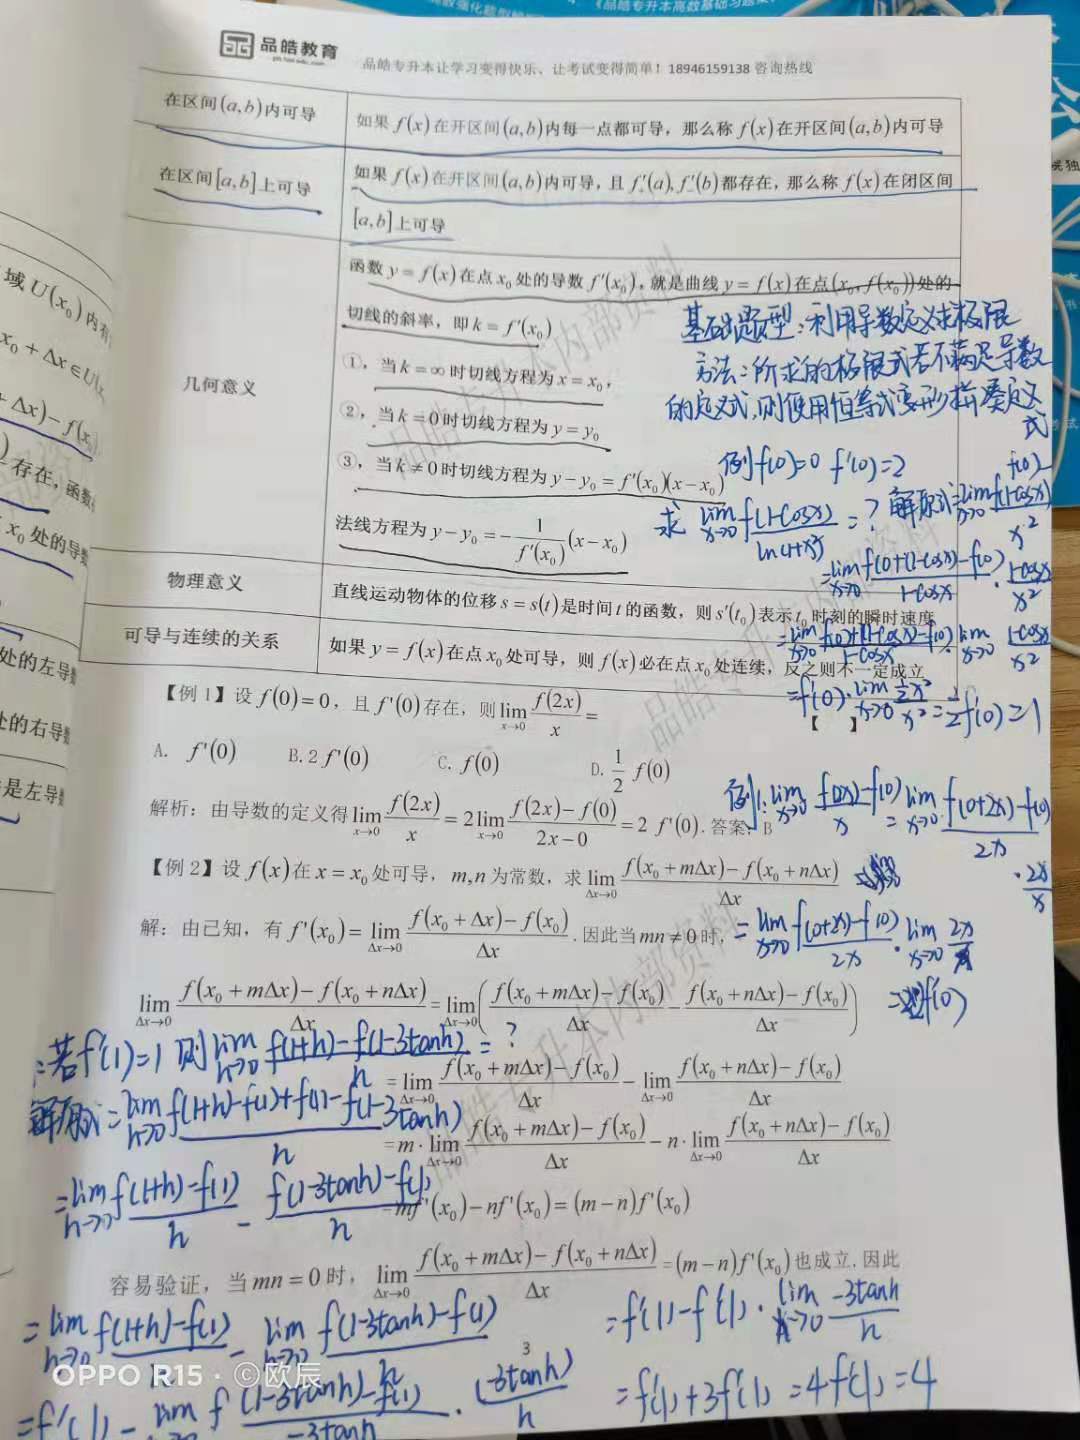 品皓教育
品皓专升本让学习变得快乐、让考试变得简单！18946159138 咨询热线
在区间(a,b)内可导
如果 f(x) 在开区间(a,b)内每一点都可导，那么称 f(x) 在开区间(a,b)内可导
在区间[a,b]上可导
如果 f(x) 在开区间(a,b)内可导，且 f'₊(a), f'₋(b) 都存在，那么称 f(x) 在闭区间
[a,b]上可导
几何意义
函数 y = f(x) 在点 x₀ 处的导数 f'(x₀)，就是曲线 y = f(x) 在点(x₀, f(x₀))处的
切线的斜率，即 k = f'(x₀)
①，当 k = ∞ 时切线方程为 x = x₀，
②，当 k = 0 时切线方程为 y = y₀
③，当 k ≠ 0 时切线方程为 y − y₀ = f'(x₀)(x − x₀)
法线方程为 y − y₀ = − 1/f'(x₀) (x − x₀)
物理意义
直线运动物体的位移 s = s(t) 是时间 t 的函数，则 s'(t₀) 表示 t₀ 时刻的瞬时速度
可导与连续的关系
如果 y = f(x) 在点 x₀ 处可导，则 f(x) 必在点 x₀ 处连续，反之则不一定成立
基础题型：利用导数定义求极限
方法：所求的极限式若不满足导数
的定义式，则使用恒等式变形拼凑定义
式
例 f(0)=0 f'(0)=2
求 lim x→0 f(1-cosx)/ln(1+x²) = ? 解原式= lim x→0 f(1-cosx)/x²
= lim x→0 f(0+(1-cosx))-f(0)/1-cosx · 1-cosx/x²
= lim x→0 f(0)+(1-cosx)-f(0)/1-cosx · lim x→0 1-cosx/x²
= f'(0) · lim x→0 ½x²/x² = ½f'(0) = 1
【例 1】设 f(0) = 0，且 f'(0) 存在，则 lim x→0 f(2x)/x = 【 】
A. f'(0) B. 2 f'(0) C. f(0) D. 1/2 f(0)
解析：由导数的定义得 lim x→0 f(2x)/x = 2 lim x→0 f(2x) − f(0)/2x − 0 = 2 f'(0). 答案：B
例1: lim x→0 f(2x)-f(0)/x = lim x→0 f(0+2x)-f(0)/2x
· 2x/x
= lim x→0 f(0+2x)-f(0)/2x · lim x→0 2x/x
= 2f'(0)
【例 2】设 f(x) 在 x = x₀ 处可导，m,n 为常数，求 lim Δx→0 f(x₀ + mΔx) − f(x₀ + nΔx)/Δx
解：由已知，有 f'(x₀) = lim Δx→0 f(x₀ + Δx) − f(x₀)/Δx . 因此当 mn ≠ 0 时，
lim Δx→0 f(x₀ + mΔx) − f(x₀ + nΔx)/Δx = lim Δx→0 ( f(x₀ + mΔx) − f(x₀)/Δx − f(x₀ + nΔx) − f(x₀)/Δx )
= lim Δx→0 f(x₀ + mΔx) − f(x₀)/Δx − lim Δx→0 f(x₀ + nΔx) − f(x₀)/Δx
= m · lim Δx→0 f(x₀ + mΔx) − f(x₀)/Δx − n · lim Δx→0 f(x₀ + nΔx) − f(x₀)/Δx
= mf'(x₀) − nf'(x₀) = (m − n)f'(x₀)
容易验证，当 mn = 0 时，lim Δx→0 f(x₀ + mΔx) − f(x₀ + nΔx)/Δx = (m − n)f'(x₀) 也成立. 因此
若 f'(1)=1 则 lim h→0 f(1+h)-f(1-3tanh)/h = ?
解原式= lim h→0 f(1+h)-f(1)+f(1)-f(1-3tanh)/h
= lim h→0 f(1+h)-f(1)/h - f(1-3tanh)-f(1)/h
= lim h→0 f(1+h)-f(1)/h - lim h→0 f(1-3tanh)-f(1)/h
= f'(1) - lim h→0 f(1-3tanh)-f(1)/-3tanh · (-3tanh)/h
= f'(1)-f'(1) · lim h→0 -3tanh/h
= f'(1)+3f'(1) = 4f'(1) = 4
3
品皓专升本内部资料
品皓专升本内部资料
品皓专升本内部资料
域 U(x₀) 内有
x₀ + Δx ∈ U(x
+ Δx) − f(x₀)
存在，函数
x₀ 处的导数
处的左导数
处的右导数
是左导数
OPPO R15 · ©欧辰